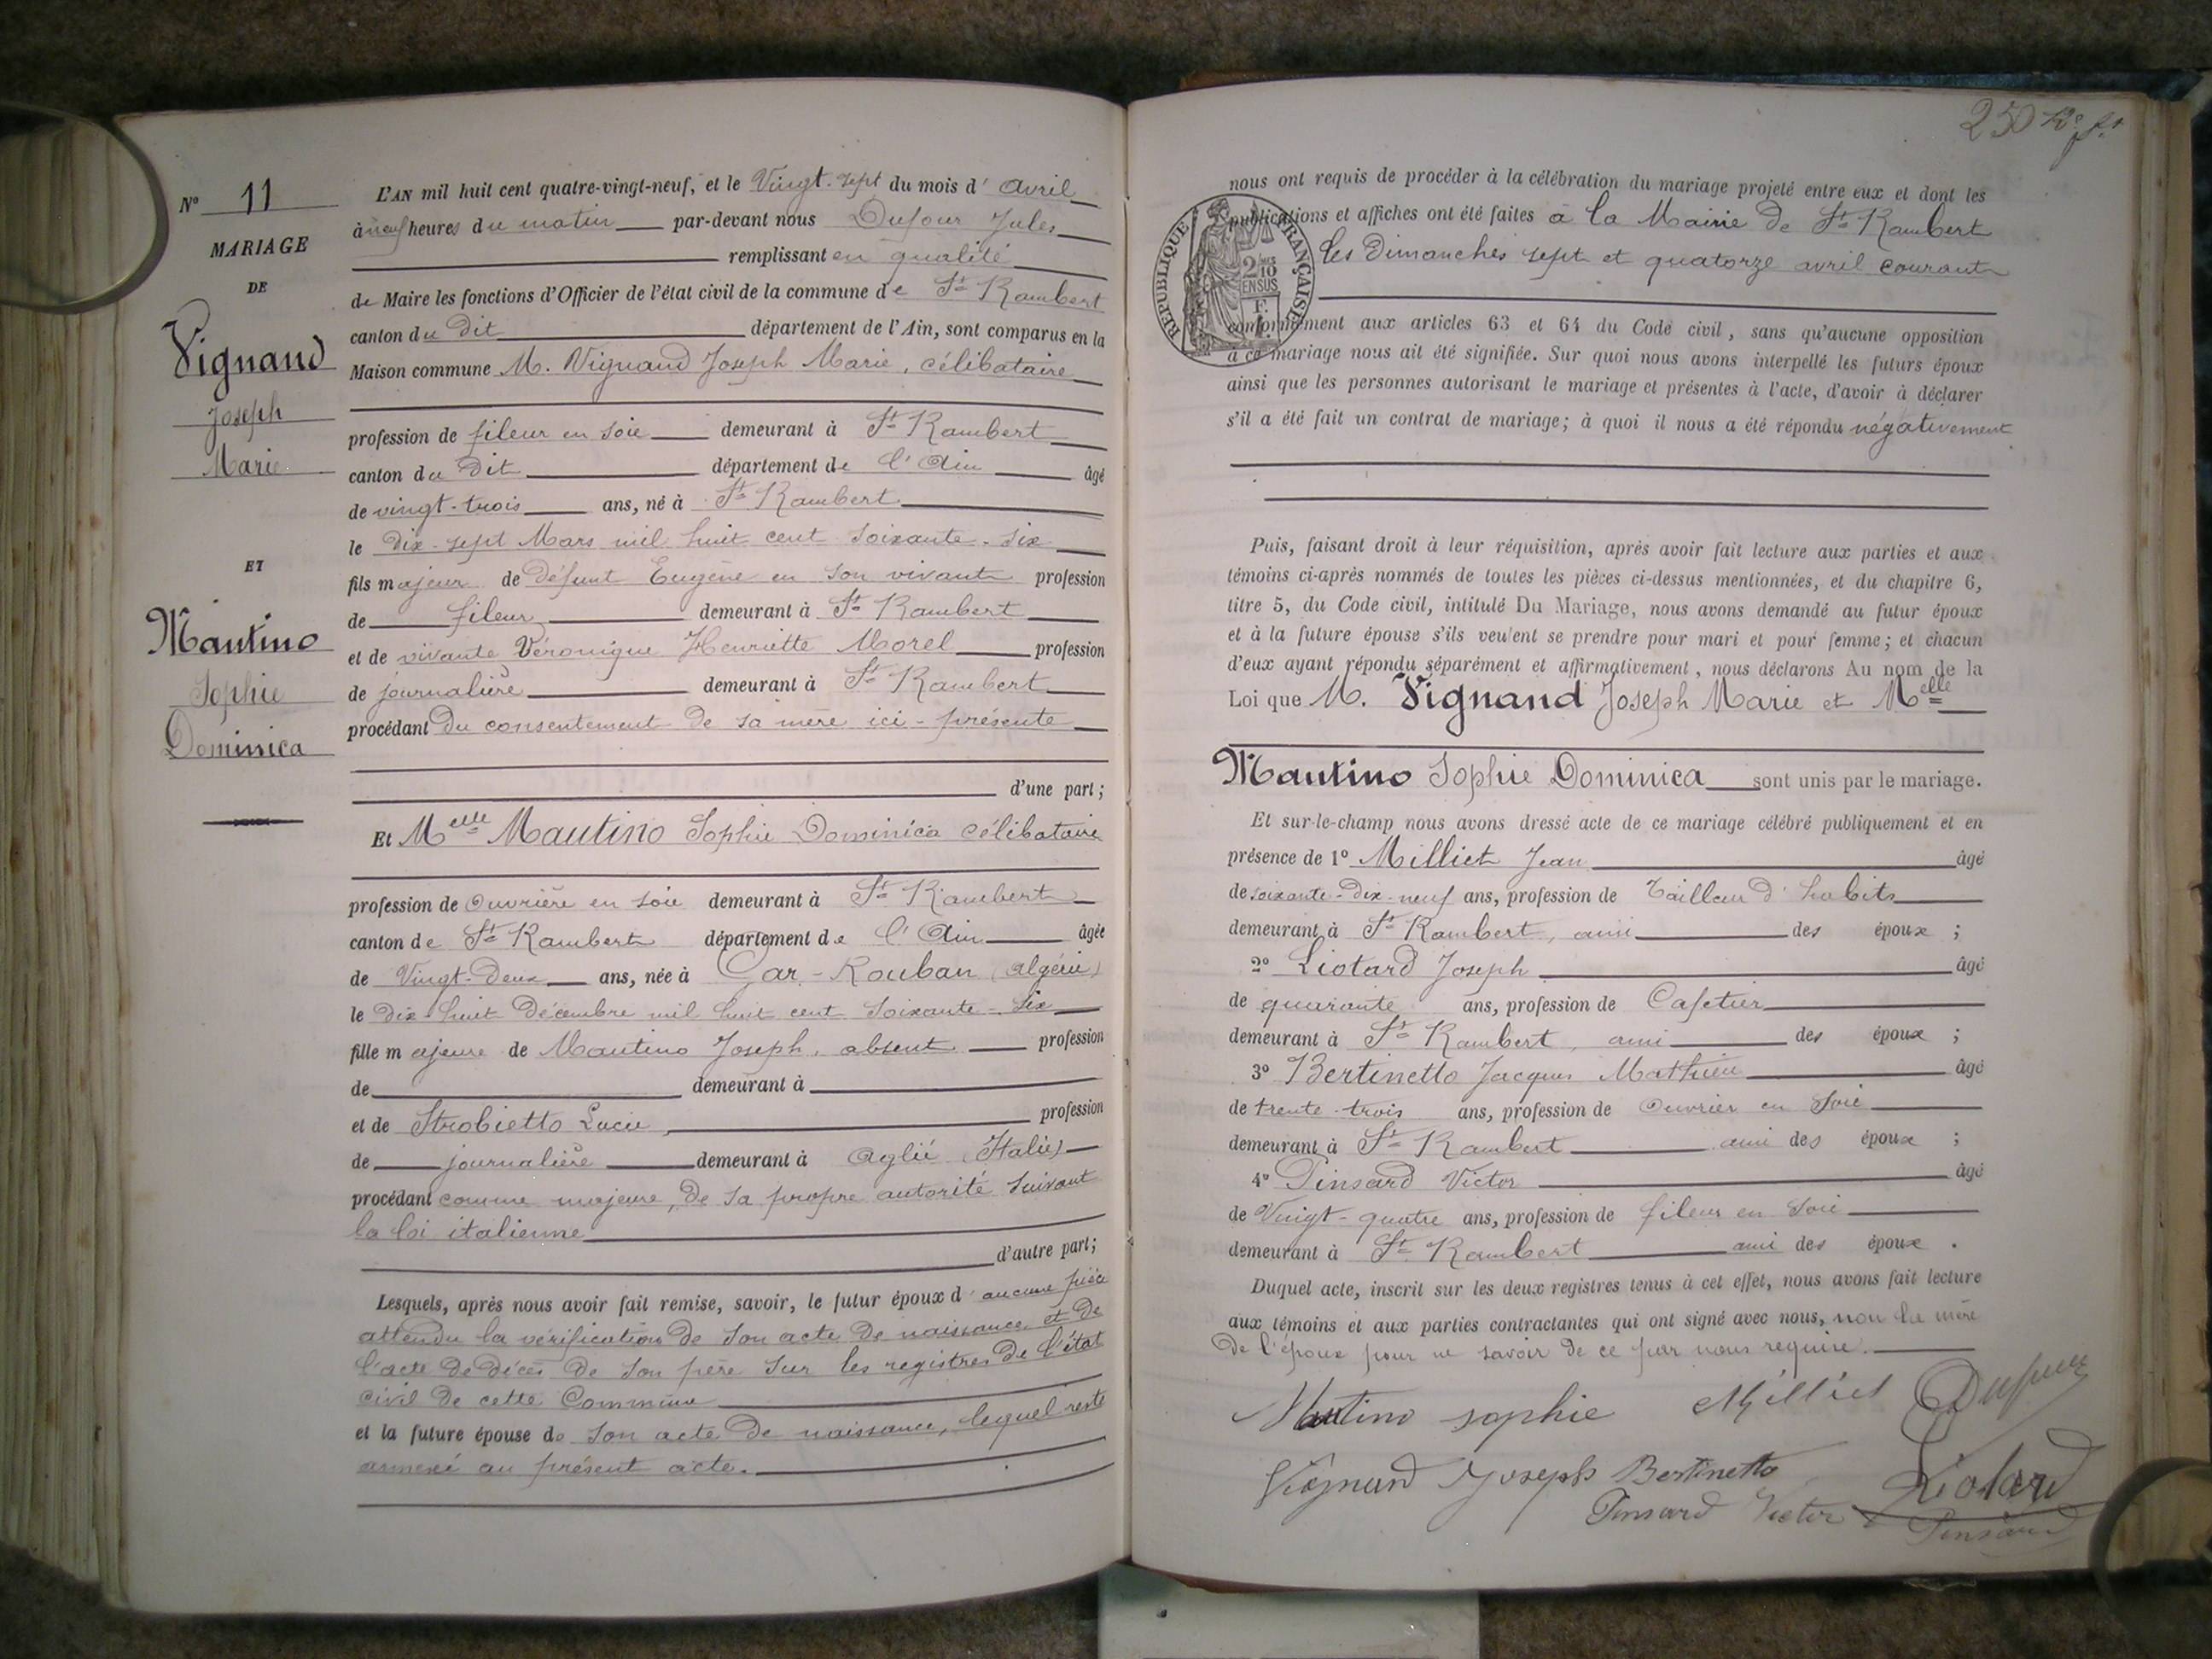 N° 11
MARIAGE
DE
Vignand
Joseph
Marie
ET
Mautino
Sophie
Dominica
L'AN mil huit cent quatre-vingt-neuf, et le Vingt-sept du mois d'avril
à neuf heures du matin par-devant nous Dufour Jules
remplissant en qualité
de Maire les fonctions d'Officier de l'état civil de la commune de St Rambert
canton du dit département de l'Ain, sont comparus en la
Maison commune M. Vignand Joseph Marie, célibataire
profession de fileur en soie demeurant à St Rambert
canton du dit département de l'Ain âgé
de vingt-trois ans, né à St Rambert
le dix-sept Mars mil huit cent soixante-six
fils majeur de défunt Eugène en son vivant profession
de fileur demeurant à St Rambert
et de vivante Véronique Henriette Morel profession
de journalière demeurant à St Rambert
procédant du consentement de sa mère ici-présente
d'une part;
Et Melle Mautino Sophie Dominica célibataire
profession de ouvrière en soie demeurant à St Rambert
canton de St Rambert département de l'Ain âgée
de Vingt-deux ans, née à Gar-Rouban (algérie)
le dix-huit décembre mil huit cent soixante-six
fille majeure de Mautino Joseph, absent profession
de demeurant à
et de Strobietto Lucie, profession
de journalière demeurant à Aglié (Italie)
procédant comme majeure, de sa propre autorité suivant
la loi italienne
d'autre part;
Lesquels, après nous avoir fait remise, savoir, le futur époux d'aucune pièce
attendu la vérification de son acte de naissance et de
l'acte de décès de son père sur les registres de l'état
civil de cette Commune
et la future épouse de son acte de naissance, lequel reste
annexé au présent acte.
250
nous ont requis de procéder à la célébration du mariage projeté entre eux et dont les
publications et affiches ont été faites à la Mairie de St Rambert
les Dimanches sept et quatorze avril courant
RÉPUBLIQUE FRANÇAISE
2 10
EN SUS
F.
conformément aux articles 63 et 64 du Code civil, sans qu'aucune opposition
à ce mariage nous ait été signifiée. Sur quoi nous avons interpellé les futurs époux
ainsi que les personnes autorisant le mariage et présentes à l'acte, d'avoir à déclarer
s'il a été fait un contrat de mariage; à quoi il nous a été répondu négativement
Puis, faisant droit à leur réquisition, après avoir fait lecture aux parties et aux
témoins ci-après nommés de toutes les pièces ci-dessus mentionnées, et du chapitre 6,
titre 5, du Code civil, intitulé Du Mariage, nous avons demandé au futur époux
et à la future épouse s'ils veulent se prendre pour mari et pour femme; et chacun
d'eux ayant répondu séparément et affirmativement, nous déclarons Au nom de la
Loi que M. Vignand Joseph Marie et Melle
Mautino Sophie Dominica sont unis par le mariage.
Et sur-le-champ nous avons dressé acte de ce mariage célébré publiquement et en
présence de 1° Milliet Jean âgé
de soixante-dix-neuf ans, profession de Tailleur d'habits
demeurant à St Rambert, ami des époux;
2° Liotard Joseph âgé
de quarante ans, profession de Cafetier
demeurant à St Rambert, ami des époux;
3° Bertinetto Jacques Mathieu âgé
de trente-trois ans, profession de ouvrier en soie
demeurant à St Rambert ami des époux;
4° Pinsard Victor âgé
de Vingt-quatre ans, profession de fileur en soie
demeurant à St Rambert ami des époux.
Duquel acte, inscrit sur les deux registres tenus à cet effet, nous avons fait lecture
aux témoins et aux parties contractantes qui ont signé avec nous, non la mère
de l'époux pour ne savoir de ce par nous requise.
Mautino sophie Milliet Dufour
Vignand Joseph Bertinetto Liotard
Pinsard Victor Pinsard